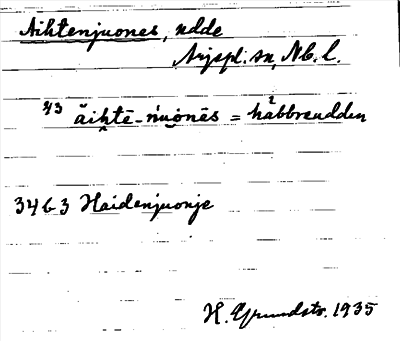 Aihtenjuones, udde
Arjepl. sn, Nb. l.
43 ăiₕtē-ńu̯ọnēs = hábbreudden
3463 Haidenjuonje
H. Grundstr. 1935